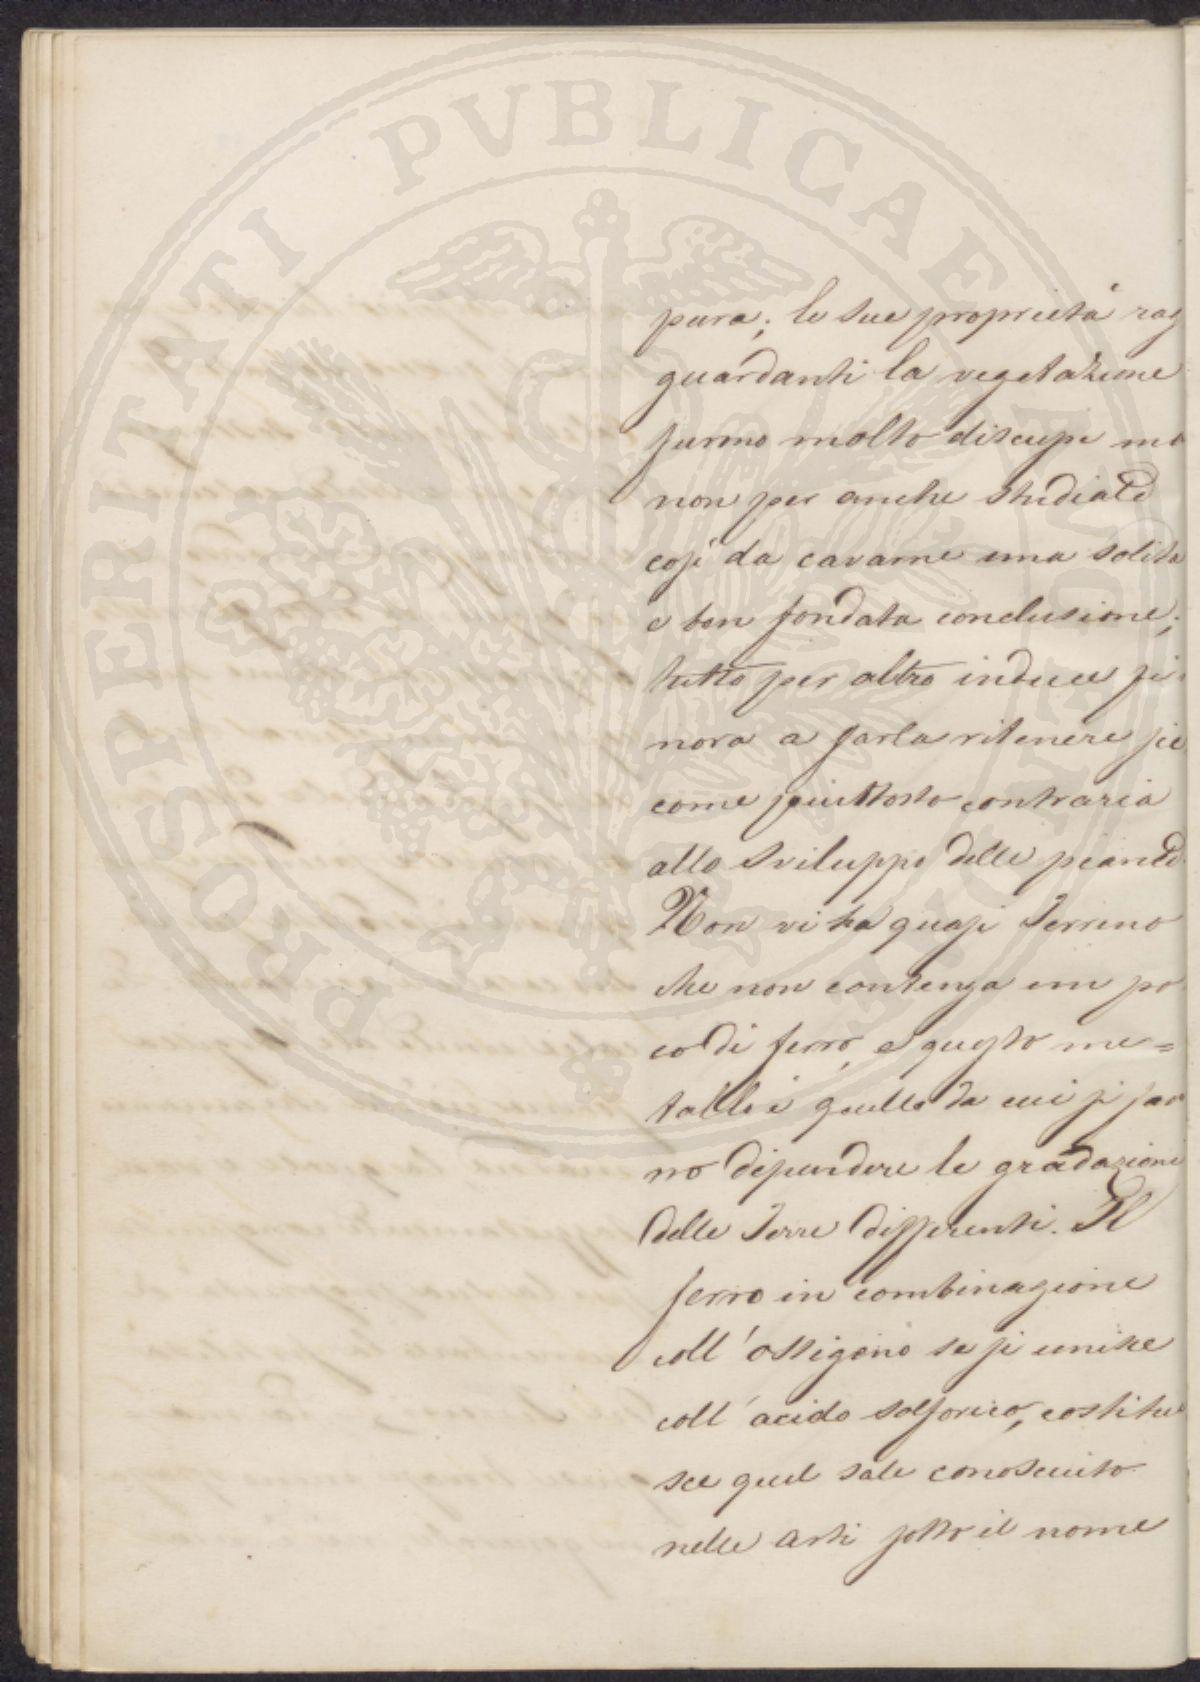 PROSPERITATI PVBLICAE
pura; le sue proprietà rag
guardanti la vegetazione
furono molto discusse ma
non per anche studiate
così da cavarne una solida
e ben fondata conclusione;
tutto per altro induce fi-
nora a farla ritenere sic
come piuttosto contraria
allo sviluppo delle piante.
Non vi ha quasi Terreno
che non contenga un po
co di ferro, e questo me=
tallo è quello da cui si fan
no dipendere le gradazione
delle Terre differenti. Il
ferro in combinazione
coll'ossigeno se si unisce
coll'acido solforico, costitui
sce quel sale conosciuto
nelle arti sotto il nome